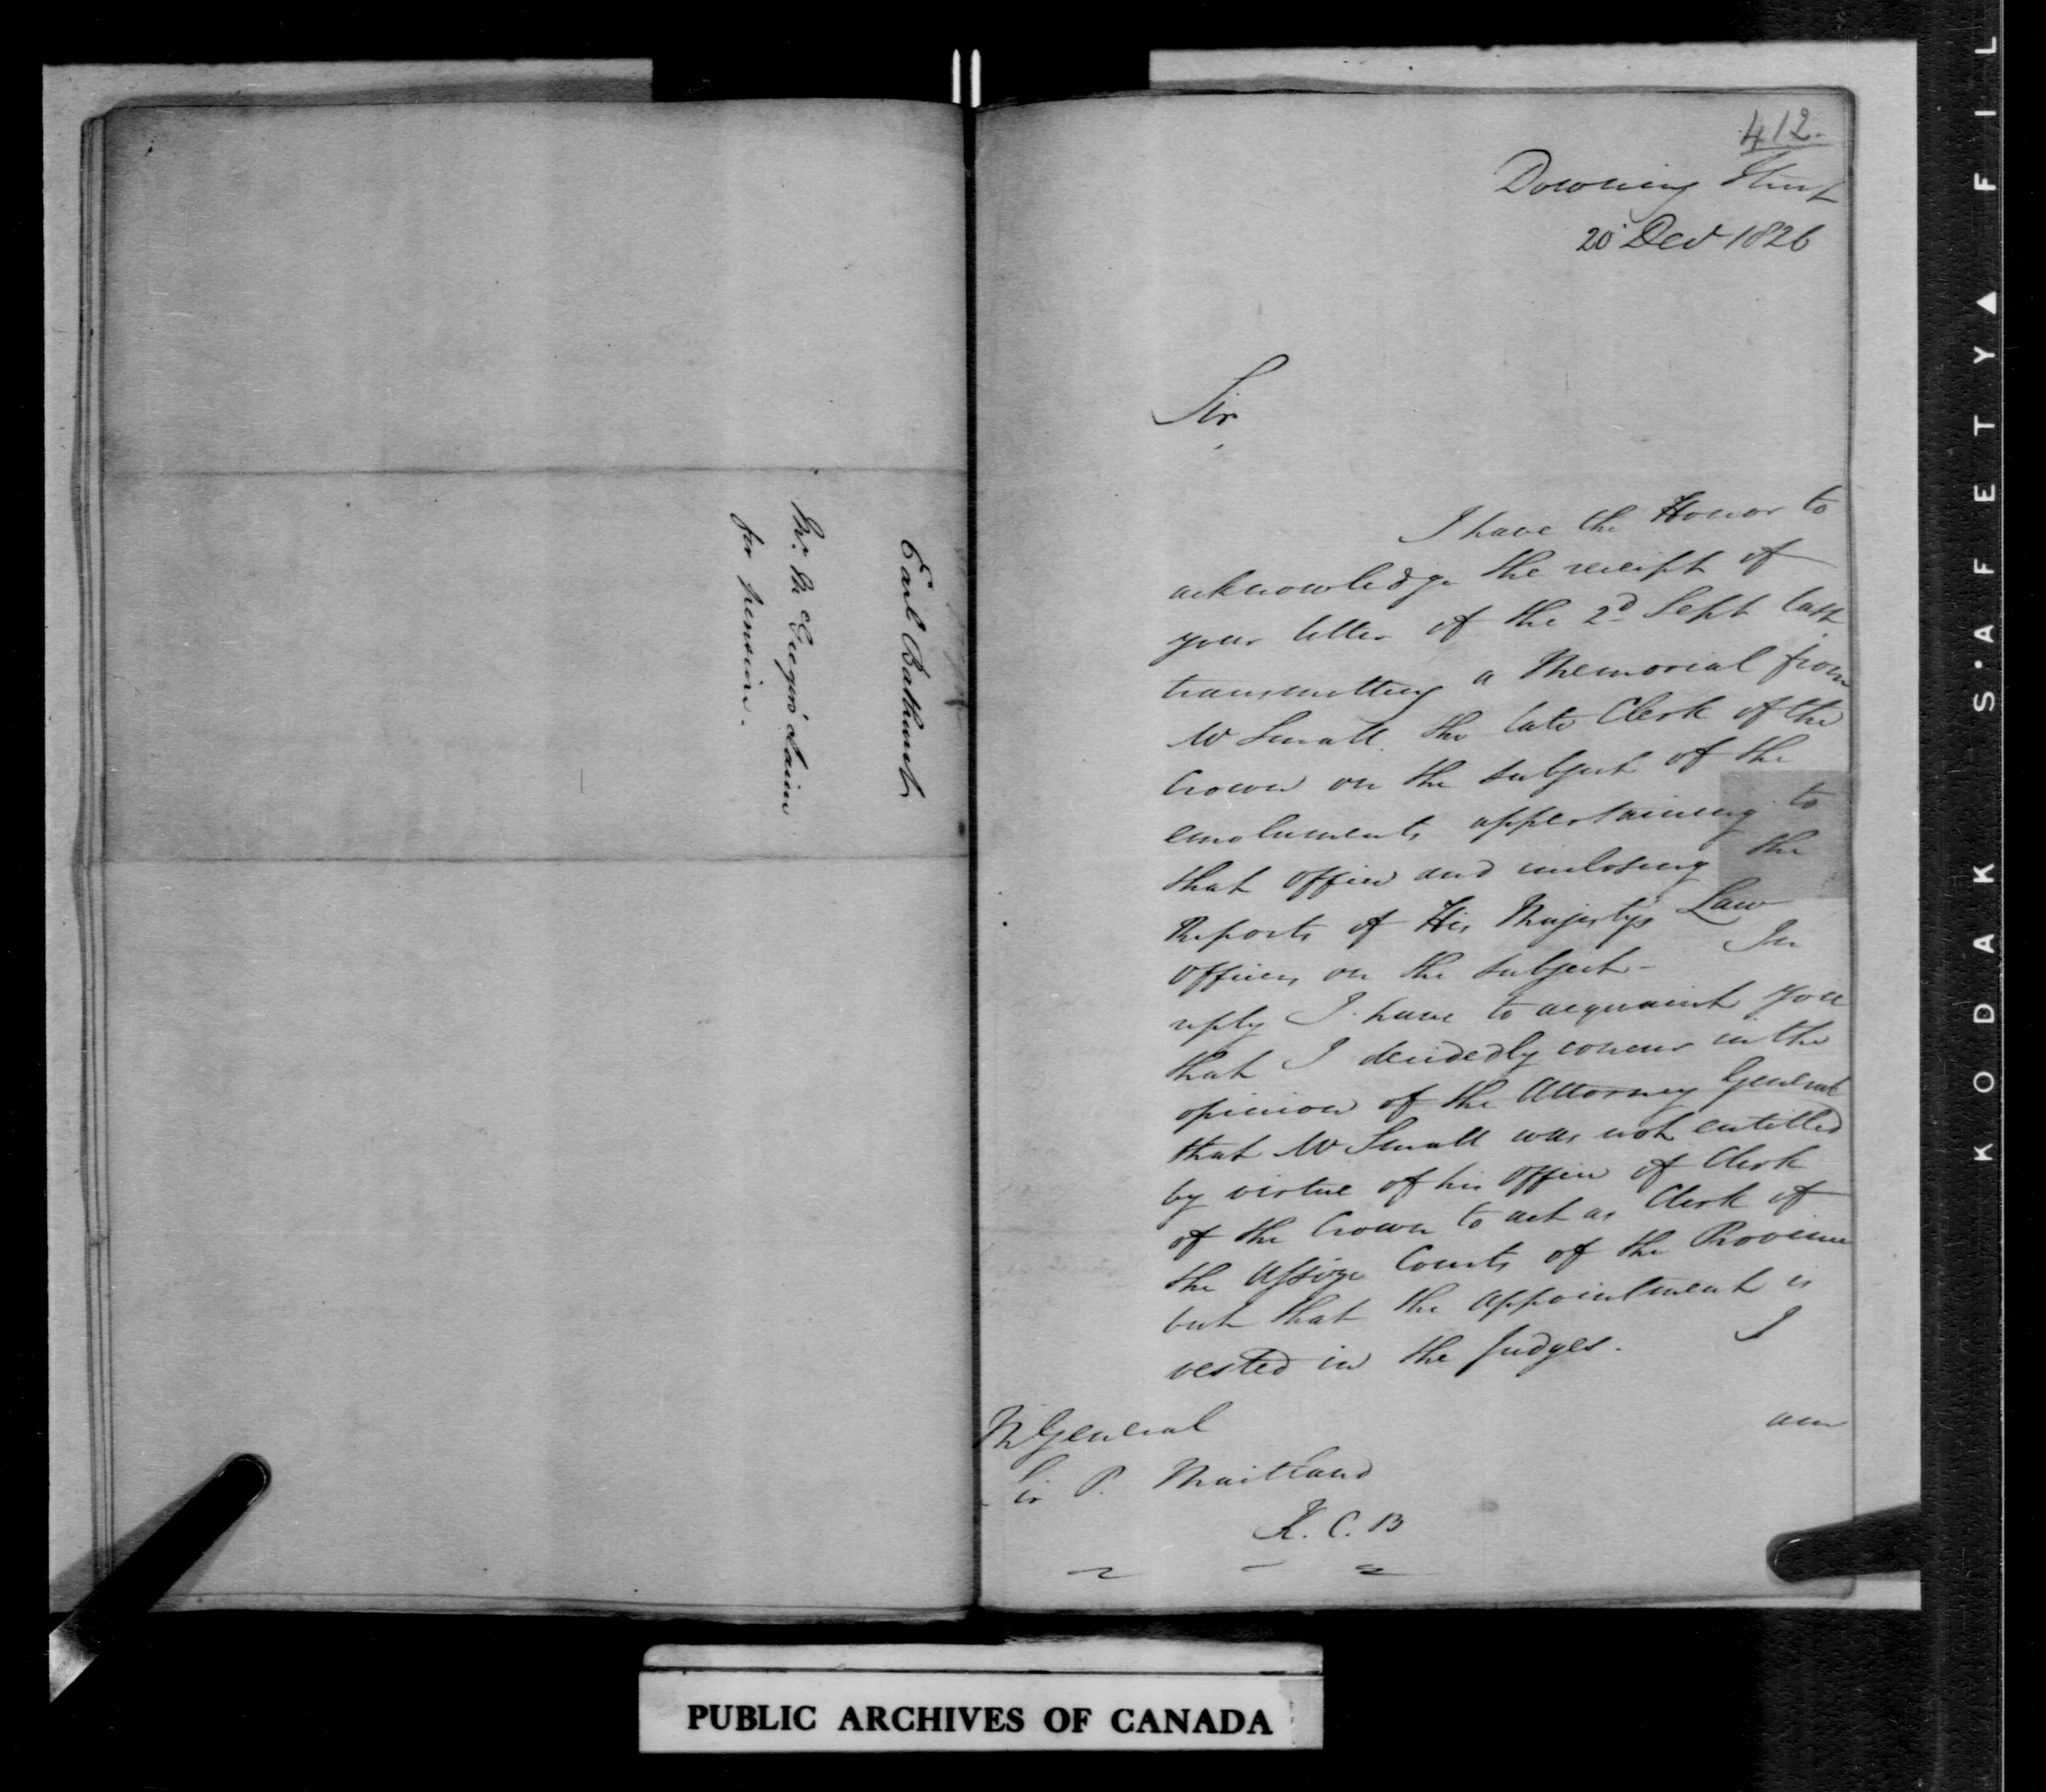 Earl Bathurst
Mr. McGregor's claim
for pension.
412.
Downing Street
20 Decr 1826
Sir,
I have the Honor to
acknowledge the receipt of
your letter of the 2d Sept last
transmitting a Memorial from
Mr Small the late Clerk of the
Crown on the subject of the
emoluments appertaining to
that office and inclosing the
Reports of His Majesty's Law
officers on the subject - In
reply I have to acquaint you
that I decidedly concur in the
opinion of the Attorney General
that Mr Small was not entitled
by virtue of his office of Clerk
of the Crown to act as Clerk of
the Assize Courts of the Province
but that the appointment is
vested in the Judges. I
am
M General
Sir P. Maitland
K. C. B
PUBLIC ARCHIVES OF CANADA
KODAK S'AFETY ▲ FIL